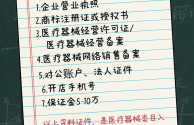 1.企业营业执照
2.商标注册证或授权书
3.医疗器械经营许可证/
医疗器械经营备案
4.医疗器械网络销售备案
5.对公账户、法人证件
6.开店手机号
7.保证金5-10万
以上资料证件，是医疗器械类目入